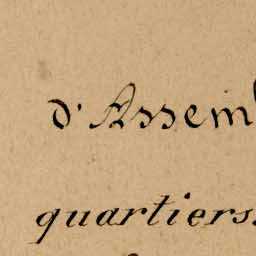 d'Assem
quartiers.